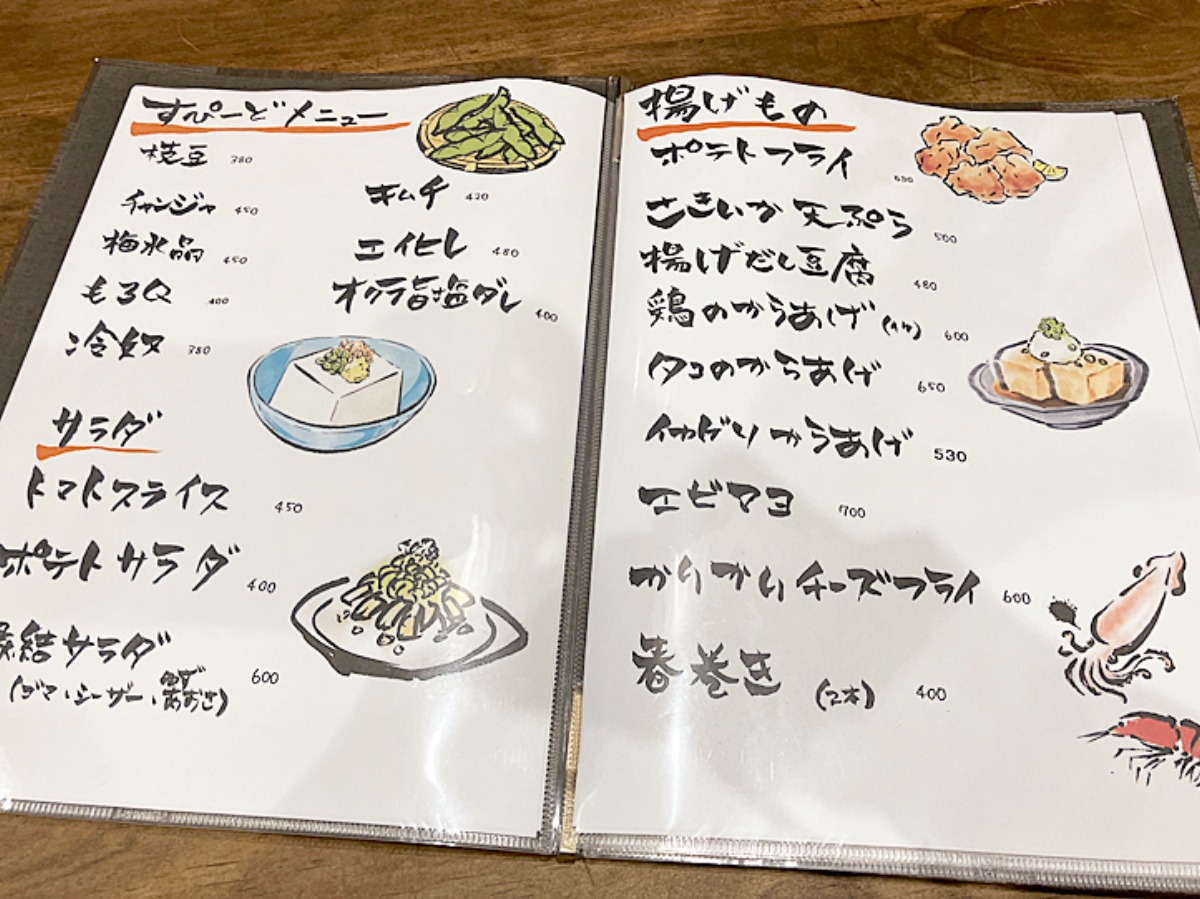 すぴーどメニュー
枝豆 380
チャンジャ 450
キムチ 420
梅水晶 450
エイヒレ 480
もろQ 400
オクラ旨塩ダレ 400
冷奴 380
サラダ
トマトスライス 450
ポテトサラダ 400
結サラダ 600
(ゴマ・シーザー・ゆずあおさ)
揚げもの
ポテトフライ
さきいか天ぷら 500
揚げだし豆腐 480
鶏のからあげ 600
タコのからあげ 650
イカゲソからあげ 530
エビマヨ 700
かりかりチーズフライ 600
春巻き (2本) 400